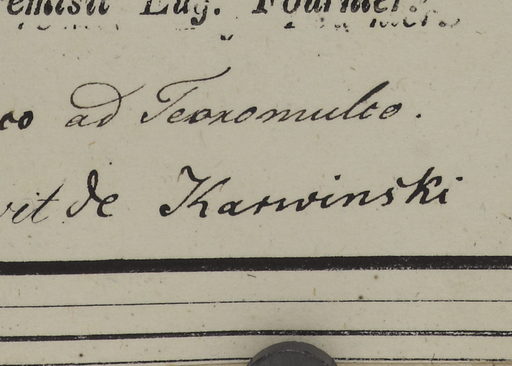 remisit Eug. Fournier.
co ad Teoxomulco.
vit de Karwinski